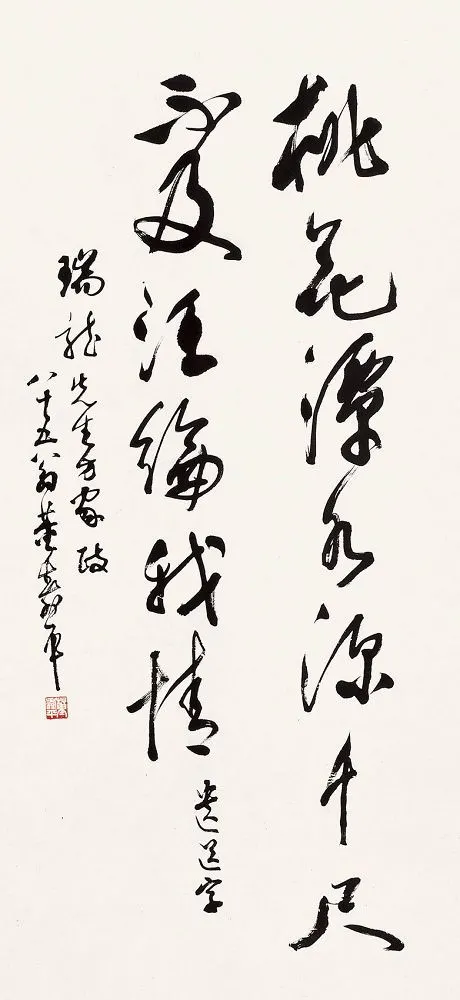 桃花潭水深千尺
不及汪綸我情
遺送字
瑞龍先生方家政
八十五翁董壽平